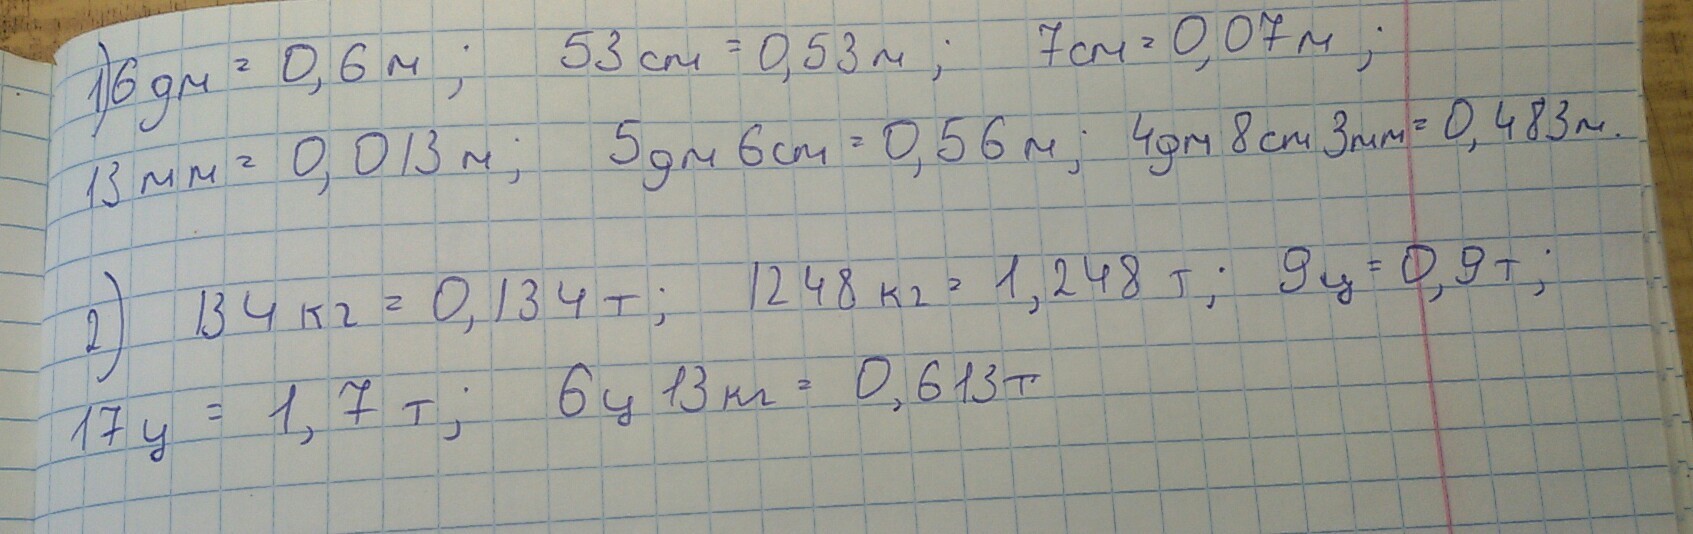 1) 6 дм = 0,6 м; 53 см = 0,53 м; 7 см = 0,07 м;
13 мм = 0,013 м; 5 дм 6 см = 0,56 м; 4 дм 8 см 3 мм = 0,483 м.
2) 134 кг = 0,134 т; 1248 кг = 1,248 т; 9 ц = 0,9 т;
17 ц = 1,7 т; 6 ц 13 кг = 0,613 т